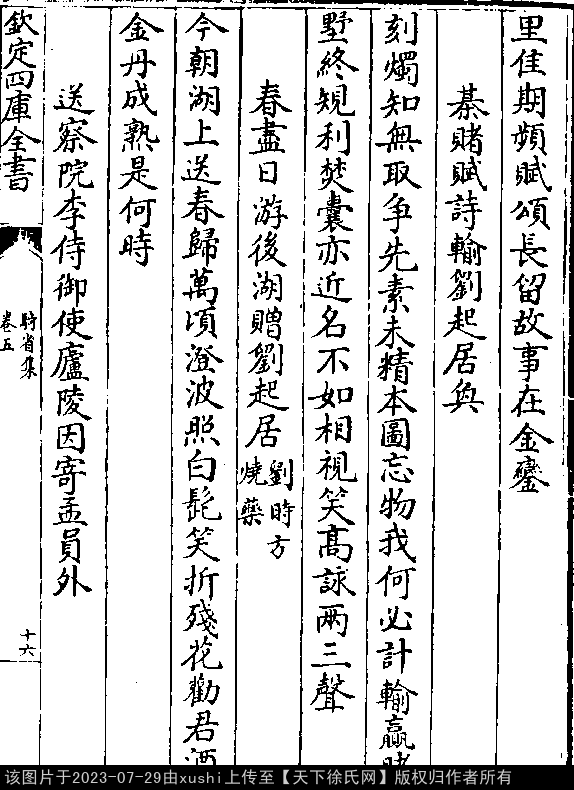 里佳期頻賦頌長留故事在金鑾
棊賭賦詩輸劉起居奐
刻燭知無取争先素未精本圖忘物我何必計輸贏賭
墅終規利焚囊亦近名不如相視笑高詠两三聲
春盡日游後湖贈劉起居劉時方燒藥
今朝湖上送春歸萬頃澄波照白髭笑折殘花勸君酒
金丹成熟是何時
送察院李侍御使廬陵因寄孟員外
欽定四庫全書
騎省集
卷五
十六
该图片于2023-07-29由xushi上传至【天下徐氏网】版权归作者所有